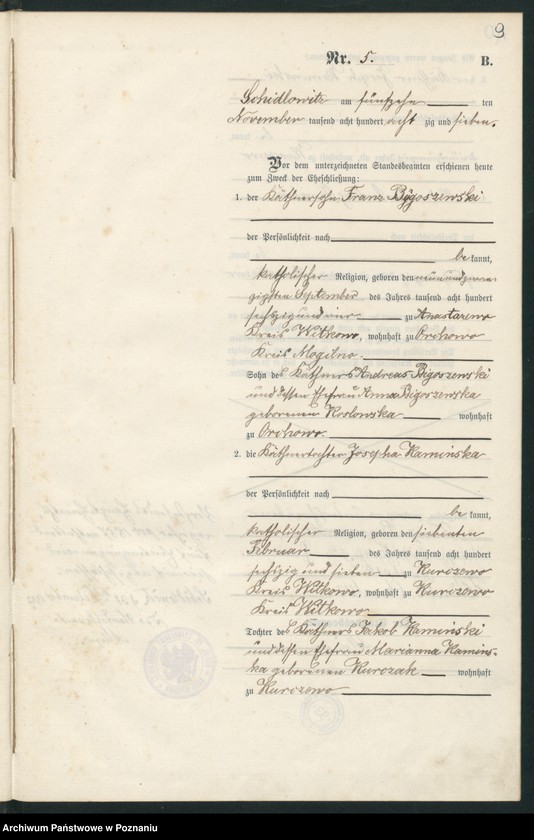 9
Nr. 5. B.
Schidlowitz am fünfzehn ten
November tausend acht hundert acht zig und sieben.
Vor dem unterzeichneten Standesbeamten erschienen heute
zum Zweck der Eheschließung:
1. der Käthnersohn Franz Bigoszewski
der Persönlichkeit nach
be kannt,
katholischer Religion, geboren den neunundzwan-
zigsten September des Jahres tausend acht hundert
sechzig und vier zu Anastazewo
Kreis Witkowo, wohnhaft zu Orchowo
Kreis Mogilno.
Sohn des Käthners Andreas Bigoszewski
und dessen Ehefrau Anna Bigoszewska
geborenen Koslowska wohnhaft
zu Orchowo.
2. die Käthnertochter Josepha Kamińska
der Persönlichkeit nach
be kannt,
katholischer Religion, geboren den siebenten
Februar des Jahres tausend acht hundert
sechzig und sieben zu Kurczewo
Kreis Witkowo, wohnhaft zu Kurczewo
Kreis Witkowo
Tochter des Käthners Jakob Kamiński
und dessen Ehefrau Marianna Kamins-
ka geborenen Kurczak wohnhaft
zu Kurczewo
Archiwum Państwowe w Poznaniu